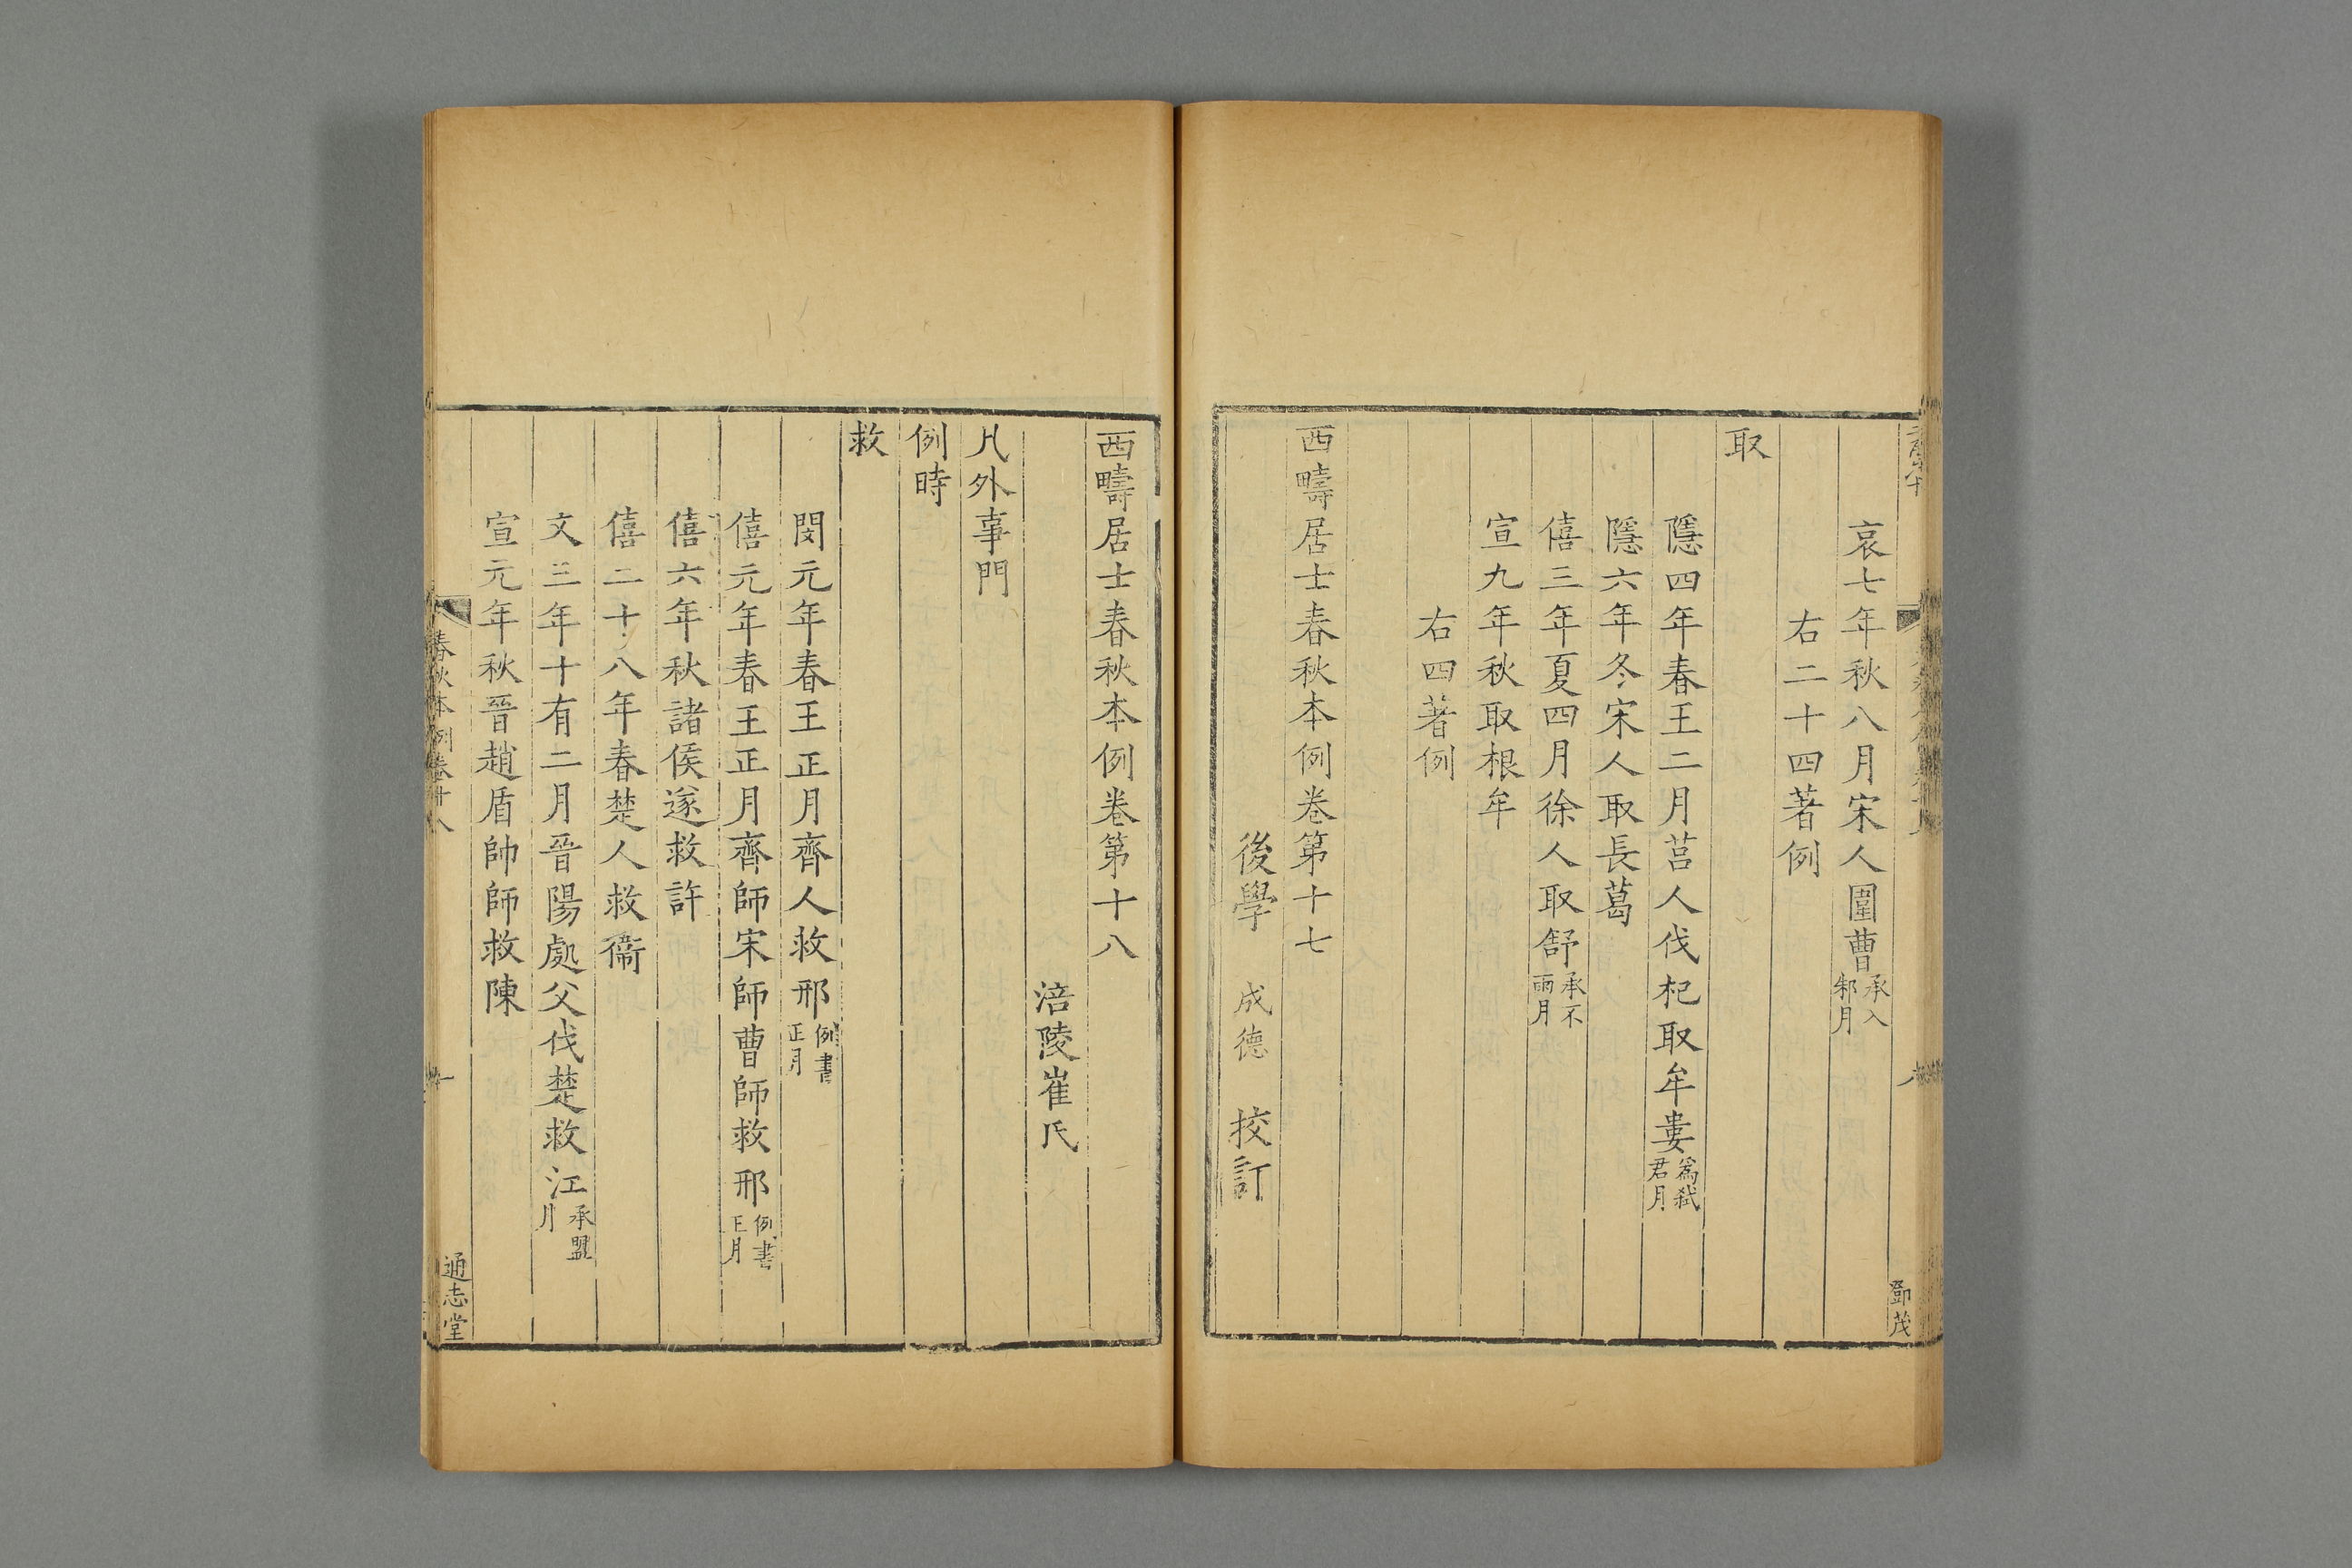 哀七年秋八月宋人圍曹承入邾月
右二十四著例
取
隱四年春王二月莒人伐杞取牟婁爲弑君月
隱六年冬宋人取長葛
僖三年夏四月徐人取舒承不雨月
宣九年秋取根牟
右四著例
西疇居士春秋本例卷第十七
後學 成德 校訂
鄧茂
西疇居士春秋本例卷第十八
涪陵崔氏
凡外事門
例時
救
閔元年春王正月齊人救邢例書正月
僖元年春王正月齊師宋師曹師救邢例書正月
僖六年秋諸侯遂救許
僖二十八年春楚人救衞
文三年十有二月晉陽處父伐楚救江承盟月
宣元年秋晉趙盾帥師救陳
春秋本例卷十八
一
通志堂